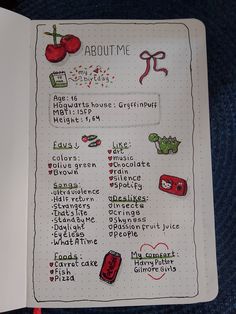 ABOUT ME
my
birtday
Age: 16
Hogwarts house: Gryffinpuff
MBTI: ISFP
Height: 1,64
Favs
colors:
olive green
Brown
Songs:
ultraviolence
Half return
Strangers
That's life
Stand By Me
Daylight
Eyeless
What A Time
Foods:
Carrot cake
Fish
Pizza
Like:
art
music
Chocolate
rain
silence
Spotify
Deslikes:
insects
cringe
Shyness
Passion fruit juice
people
My comfort:
Harry Potter
Gilmore Girls